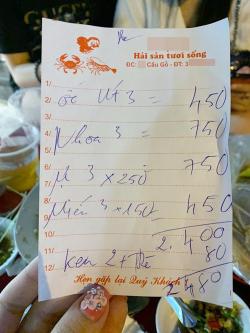 Hải sản tươi sống
ĐC: Cầu Gỗ - ĐT: 3
1/
2/ ốc út 3 = 450
3/
4/ Nhoa 3 = 750
5/
6/
7/ 3 x 250 750
8/
9/ Miến 3 x 150 = 450
10/ 2.400
11/ 80
12/ ken 2 +
2480
Hẹn gặp lại Quý Khách